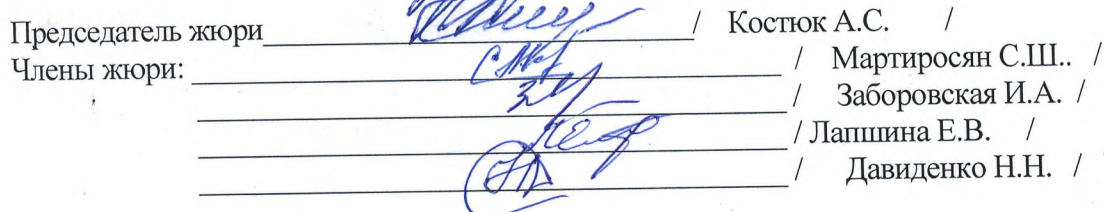 Председатель жюри / Костюк А.С. /
Члены жюри: / Мартиросян С.Ш.. /
/ Заборовская И.А. /
/ Лапшина Е.В. /
/ Давиденко Н.Н. /